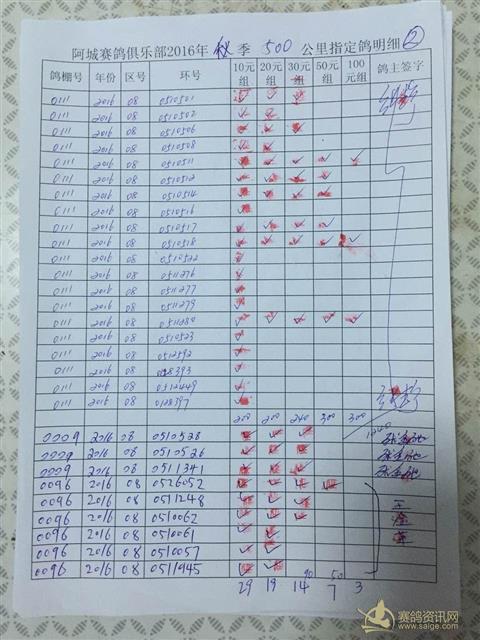 阿城赛鸽俱乐部2016年 秋 季 500 公里指定鸽明细 ②
鸽棚号 年份 区号 环号 10元组 20元组 30元组 50元组 100元组 鸽主签字
0111 2016 08 0510501
0111 2016 08 0510502
0111 2016 08 0510506
0111 2016 08 0510508
0111 2016 08 0510511
0111 2016 08 0510512
0111 2016 08 0510514
0111 2016 08 0510516
0111 2016 08 0510517
0111 2016 08 0510518
0111 2016 08 0510522
0111 2016 08 0511276
0111 2016 08 0511277
0111 2016 08 0511279
0111 2016 08 0511280
0111 2016 08 0510523
0111 2016 08 0512592
0111 2016 08 0128393
0111 2016 08 0512449
0111 2016 08 0128397
200 200 240 300 300 1240
0009 2016 08 0510528
0009 2016 08 0510526
0009 2016 08 0511341
0096 2016 08 0526052
0096 2016 08 0511248
0096 2016 08 0510062
0096 2016 08 0510061
0096 2016 08 0510057
0096 2016 08 0511945
90 50
29 19 14 7 3
赛鸽资讯网
www.saige.com